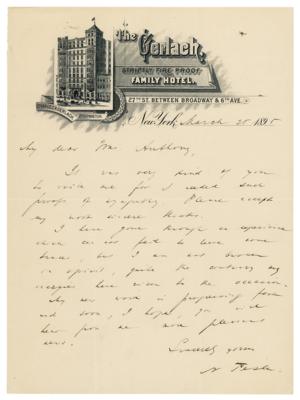 The Gerlach,
STRICTLY FIRE PROOF
FAMILY HOTEL.
27TH ST. BETWEEN BROADWAY & 6TH AVE.
New York, March 25 1895
My dear Mrs Anthony,
It was very kind of you
to write me for I need such
proofs of sympathy. Please accept
my most sincere thanks.
I have gone through an experience
which can not fail to leave some
traces, but I am not broken
in spirit, quite the contrary my
energies have risen to the occasion.
My new work is progressing fast
and soon, I hope, you will
hear from me more pleasant
news.
Sincerely yours
N Tesla